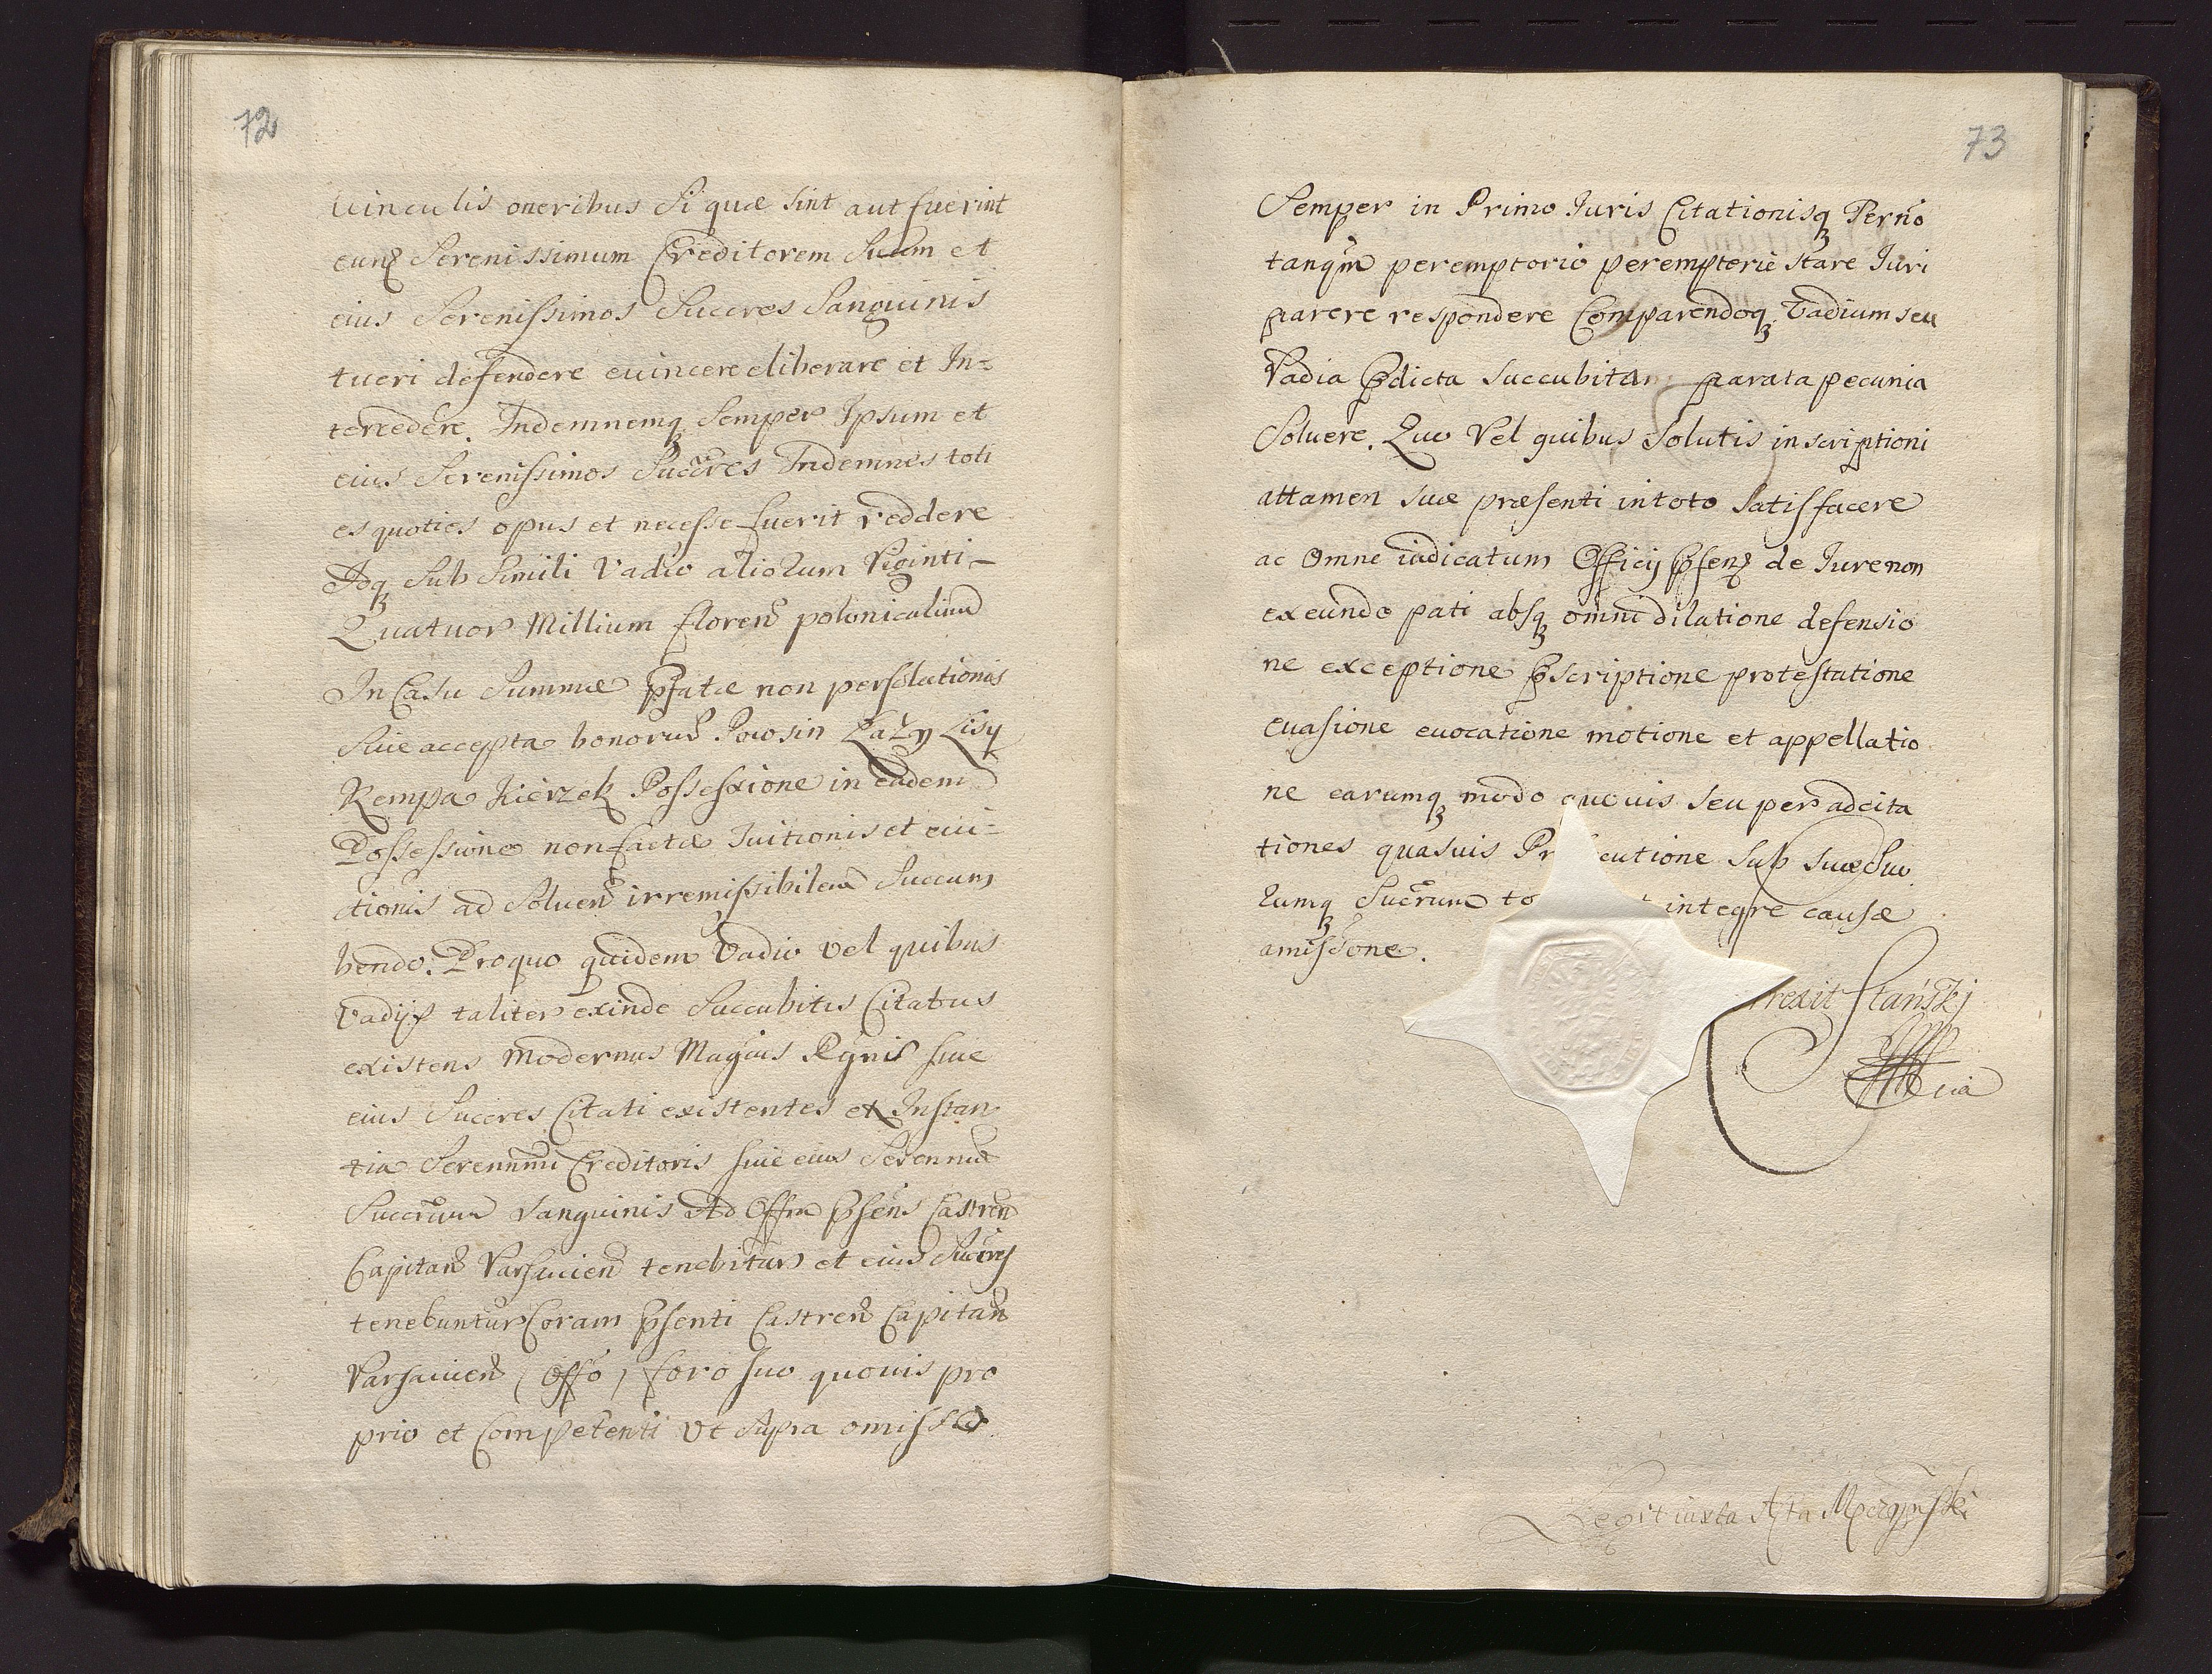 72
vinculis oneribus Si quæ sint aut fuerint
eund Serenissimum Creditorem Suum et
eius Serenissimos Succres Sanguinis
tueri defendere evincere eliberare et In=
tercedere. Indemnemq Semper Ipsum et
eius Serenissimos Succres Indemnes toti
es quoties opus et necesse fuerit reddere
Idq Sub Simili Vadio aliorum Viginti
Quatuor Millium floren polonicalium
In Casu Summæ pfatæ non persolutionis
Suæ accepta bonorum Powsin Lazy Lisy
Kempa Kierzek Possessione in eadem
Possessione non factæ Tuitionis et evi=
ctionis ad Soluen irremissibilem Succum
bendo. Pro quo quidem Vadio vel quibus
Vadijs taliter exinde Succubitis Citatus
existens Modernus Magcus Rgnis sive
eius Succres Citati existentes ex Instan
tia Serenmi Creditoris sive eius Serenmor
Succrum Sanguinis Ad Offm psens Castren
Capitan Varsavien tenebitur et eius Succres
tenebuntur Coram psenti Castren Capitan
Varsavien (Offo) foro suo quovis pro
prio et Competenti Ut Supra omisso
73
Semper in Primo Iuris Citationisq Termo
tanqm peremptorio peremptorie stare Iuri
parere respondere Comparendoq Vadium seu
Vadia pdicta Succubita parata pecunia
Solvere. Quo Vel quibus Solutis inscriptioni
attamen suæ præsenti in toto Satisfacere
ac Omne iudicatum Officij psens de Iure non
exeundo pati absq omni dilatione defensio
ne exceptione pscriptione protestatione
evasione evocatione motione et appellatio
ne earumq modo quovis seu per adcita
tiones quasvis Pr cutione Sub suæ Suo
rumq Succrum to integre causæ
amissione.
rexit Stański
Legit iuxta Acta